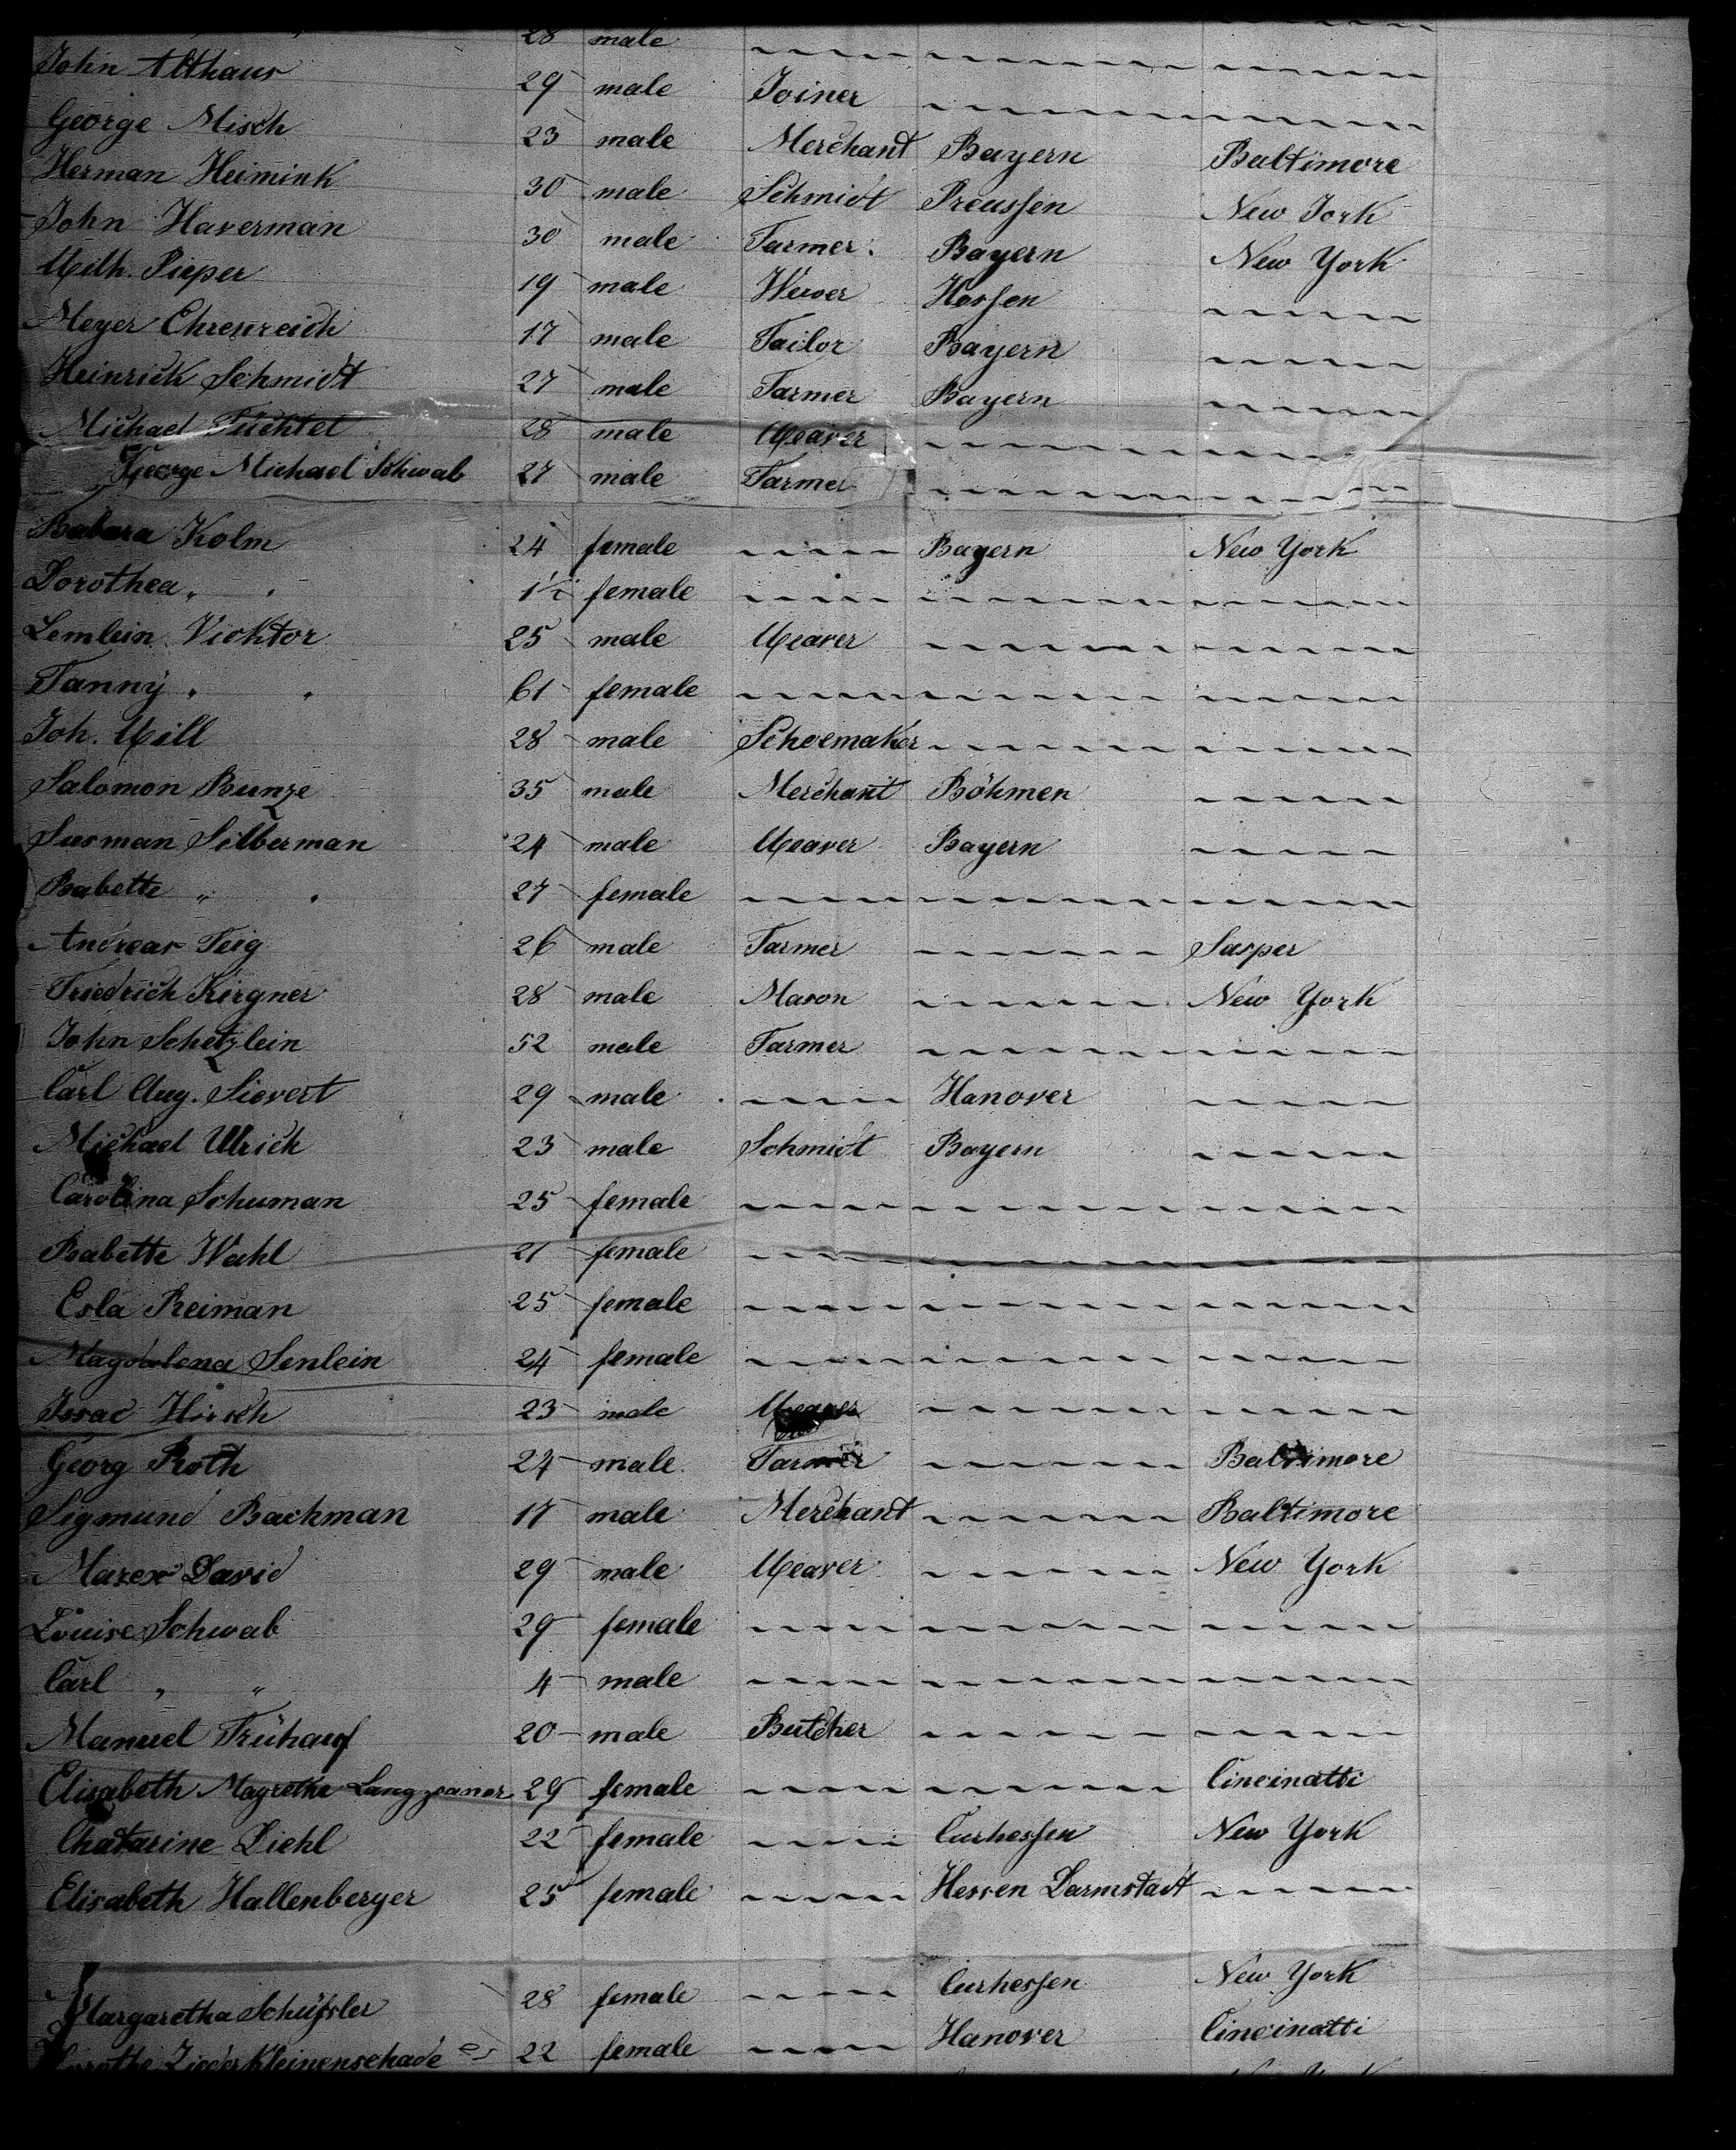 28 male
John Althaus 29 male Joiner
George Misch 23 male Merchant Bayern Baltimore
Herman Heimink 30 male Schmidt Preussen New York
John Haverman 30 male Farmer Bayern New York
Wilh. Pieper 19 male Wewer Hessen
Meyer Ehrenreich 17 male Tailor Bayern
Heinrich Schmidt 27 male Farmer Bayern
Michael Füchtel 28 male Weaver
George Michael Schwab 27 male Farmer
Babara Kolm 24 female Bayern New York
Dorothea " " female
Lemlein Vicktor 25 male Weaver
Fanny " " 61 female
Joh. Will 28 male Schoemaker
Salomon Bunze 35 male Merchant Böhmen
Susman Silberman 24 male Weaver Bayern
Babette " " 27 female
Andreas Feig 26 male Farmer Jasper
Friedrich Kirgner 28 male Mason New York
John Schetzlein 52 male Farmer
Carl Aug. Sievert 29 male Hanover
Michael Ulrich 23 male Schmidt Bayern
Carolina Schuman 25 female
Babette Wahl 21 female
Esla Reiman 25 female
Magdalena Senlein 24 female
Issac Hirsch 23 male Weaver
Georg Roth 24 male Farmer Baltimore
Sigmund Bachman 17 male Merchant Baltimore
David 29 male Weaver New York
Louise Schwab 29 female
Carl " " 4 male
Manuel Frühauf 20 male Butcher
Elisabeth Magretha 29 female Cincinatti
Chatarine Diehl 22 female Curhessen New York
Elisabeth Hallenberger 25 female Hessen Darmstadt
Margaretha Schüssler 28 female Curhessen New York
22 female Hanover Cincinatti